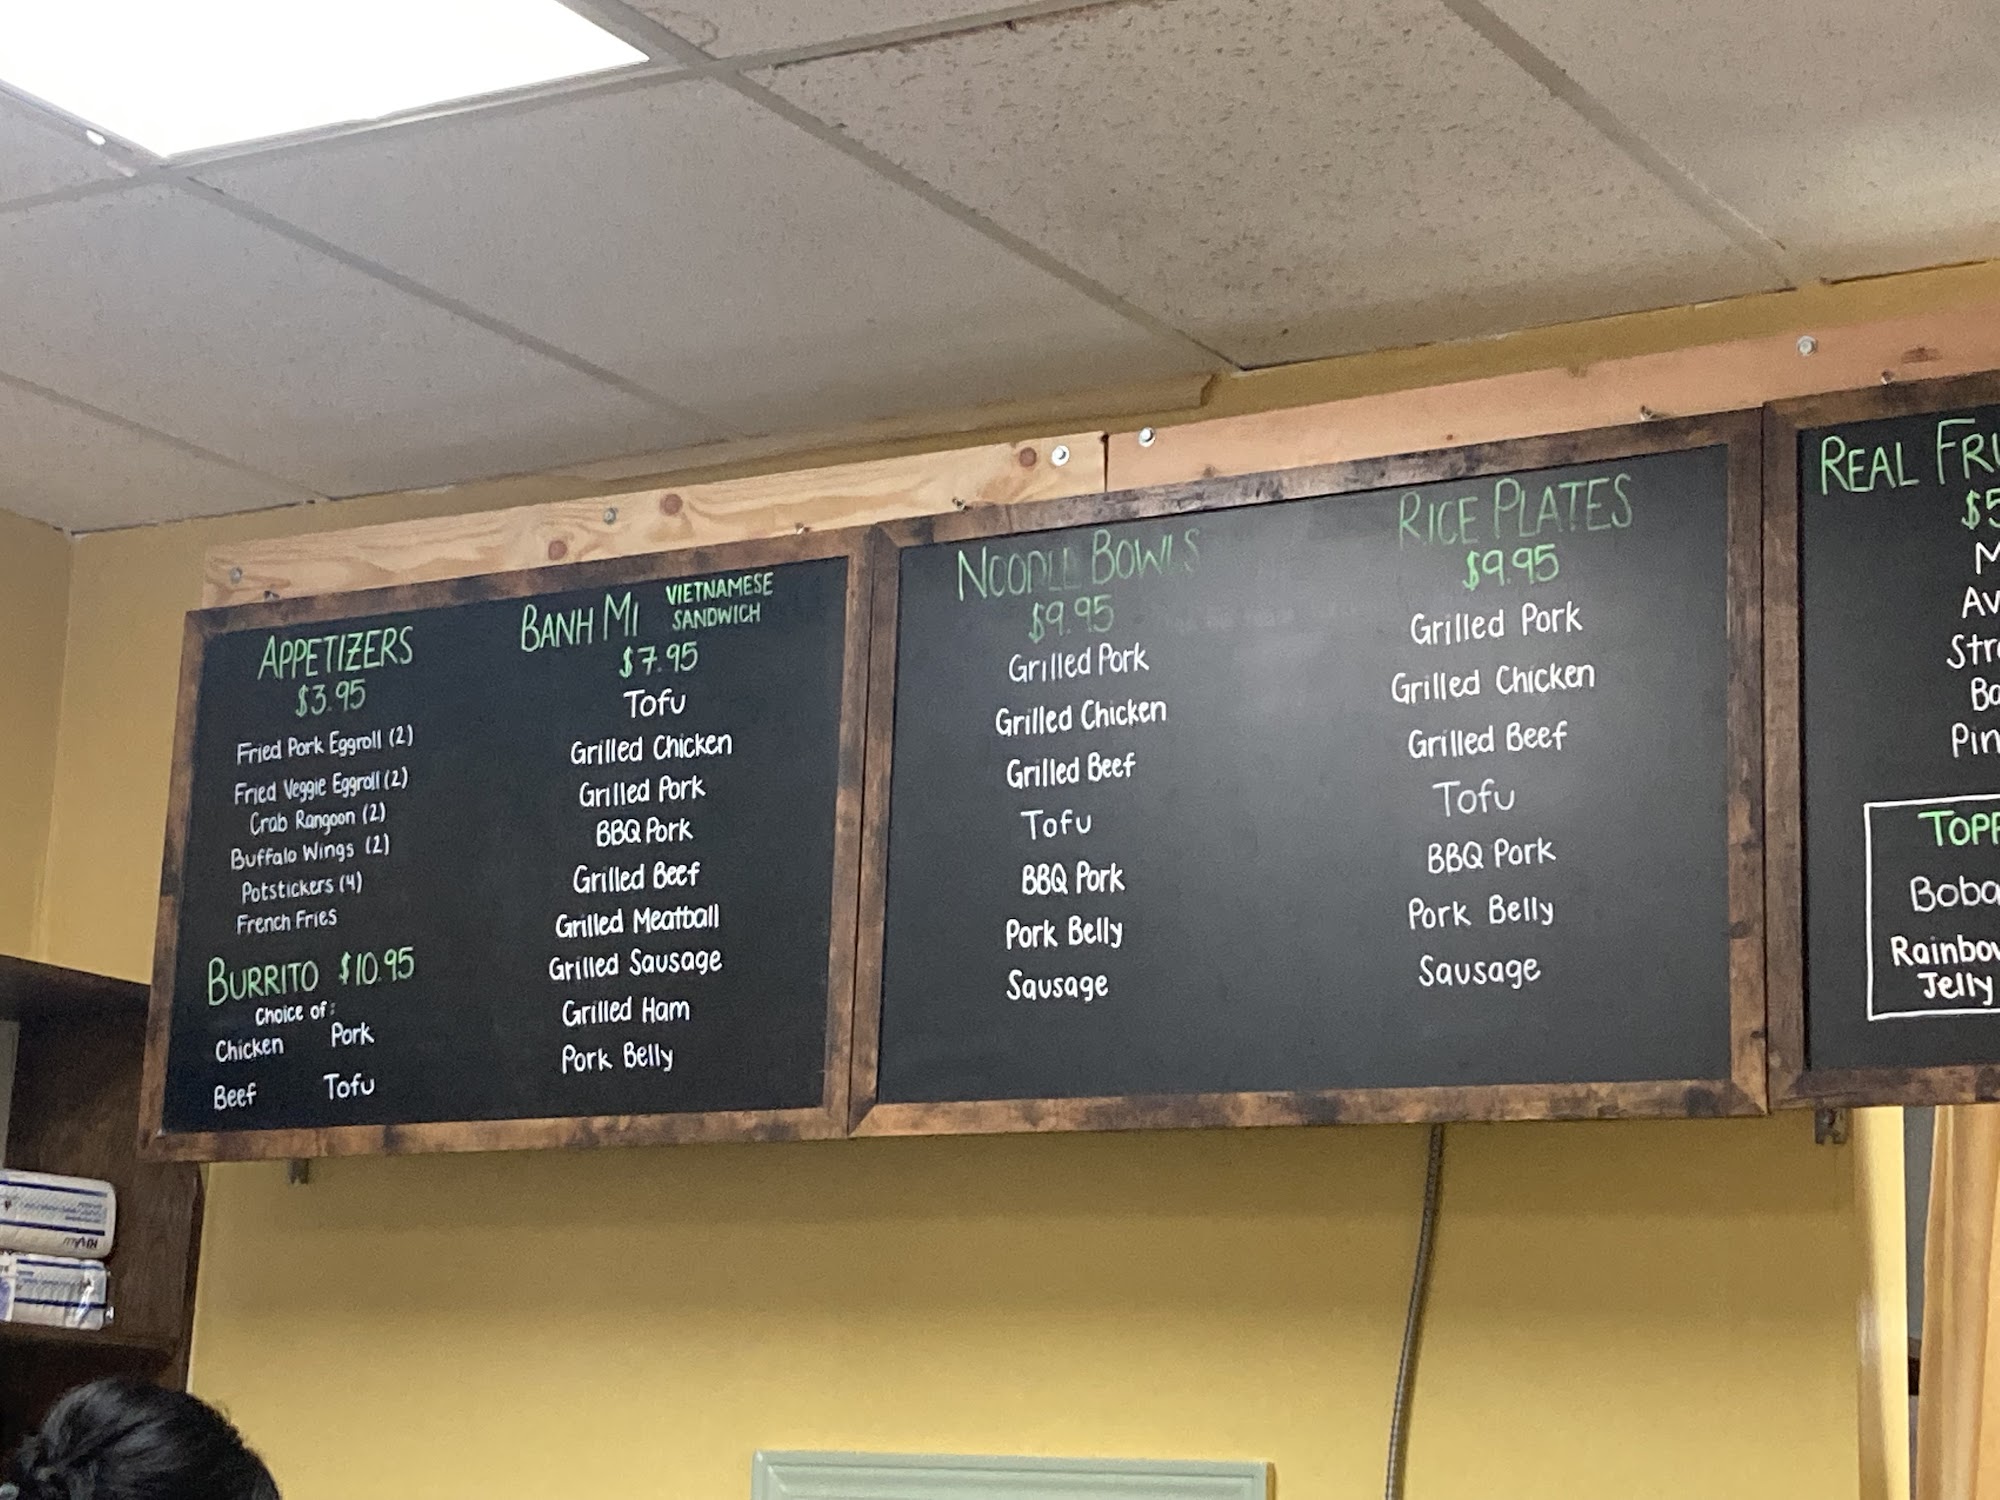 APPETIZERS
$3.95
Fried Pork Eggroll (2)
Fried Veggie Eggroll (2)
Crab Rangoon (2)
Buffalo Wings (2)
Potstickers (4)
French Fries
BURRITO $10.95
Choice of:
Chicken Pork
Beef Tofu
BANH MI VIETNAMESE
SANDWICH
$7.95
Tofu
Grilled Chicken
Grilled Pork
BBQ Pork
Grilled Beef
Grilled Meatball
Grilled Sausage
Grilled Ham
Pork Belly
NOODLE BOWLS
$9.95
Grilled Pork
Grilled Chicken
Grilled Beef
Tofu
BBQ Pork
Pork Belly
Sausage
RICE PLATES
$9.95
Grilled Pork
Grilled Chicken
Grilled Beef
Tofu
BBQ Pork
Pork Belly
Sausage
REAL FRU
$5
M
Av
Str
Ba
Pin
TOPP
Boba
Rainbow
Jelly